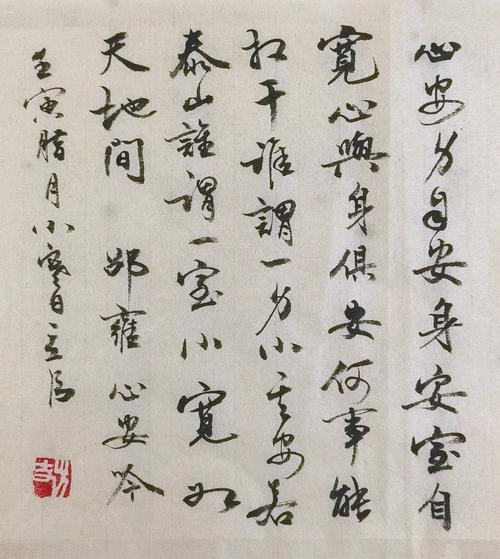 心安身自安身安室自
寬心與身俱安何事能
相干誰謂一身小其安若
泰山誰謂一室小寬如
天地間 邵雍心安吟
壬寅腊月小寒日立